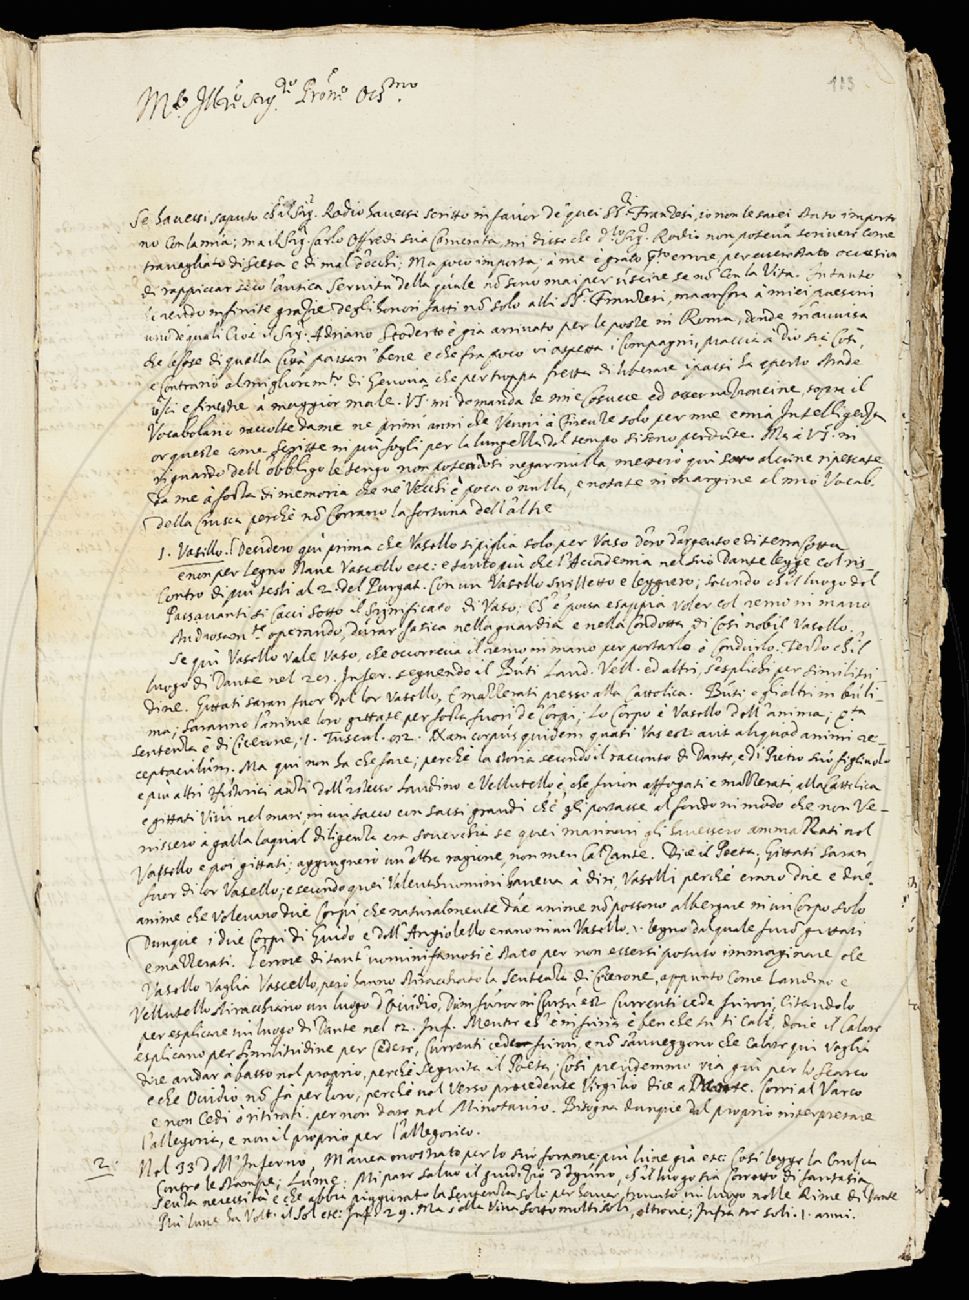 113
Se havessi saputo ch'il Sig.r Rodio havessi scritto in favor de quei SS.ri Franzesi, io non le sarei stato importu
no con la mia; ma il Sig.r Carlo Offredi sua Camerata, mi disse che d.to Sig.r Rodio non poteva scrivere come
travagliato di scesa e di mal d'occhi; Ma poco importa; à me è grato q.to errore, per esser stato occasion
di rappiccar seco l'antica servitù della quale nõ sono mai per uscire se nõ con la Vita. Intanto
le rendo infinite grazie degli honori fatti nõ solo alli SS.ri Franzesi, ma ancora à miei paesani
uno de quali cioè il Sig.r Adriano è già arrivato per le poste in Roma, donde m'avvisa
che le cose di quella Città passan bene e che fra poco vi aspetta i Compagni, piaccia à Dio sia così,
e contrario al miglioram.to di Genova che per troppa fretta di liberare i passi ha aperto strade
usci e finestre à maggior male. VS. mi domanda le mie cosucce ed osservazioncine sopra il
Vocabolario raccolte da me ne primi anni che venni à Firenze solo per me e mia Intelligenza
or queste come scritte in più fogli per la lunghezza del tempo si sono perdute. Ma à VS. in
riguardo dell'obbligo le tengo non potendosi negar nulla metterò qui sotto alcune ripescate
da me à forza di memoria che ne Vecchi è poca ò nulla, e notate in margine al mio Vocab.
della Crusca perchè nõ corrano la fortuna dell'altre
1. Vasello. Desidero qui prima che Vasello si piglia solo per Vaso d'oro d'argento e di terra cotta
e non per legno Nave Vascello etc: e tanto più che l'Accademia nel suo Dante legge col ris-
contro di più testi al 2. del Purgat. Con un Vasello snelletto e leggiero; secondo ch'il luogo del
Passavanti si cacci sotto il significato di Vaso; Ch'è posa e sappia voler col remo in mano
operando, durar fatica nella guardia e nella condotta di così nobil Vasello.
Se qui Vasello vale vaso, che occorreva il remo in mano per portarlo ò condurlo. Terzo ch'il
luogo di Dante nel 28. Infer. seguendo il Buti Land. Vell. ed altri, s'esplichi per similitu-
dine. Gittati saran fuor del lor Vasello, E mazzerati presso alla Cattolica. Buti e gli altri in buli-
ma; saranno l'anime loro gittate per forza fuori de corpi; Lo corpo è Vasello dell'anima; q.ta
sentenza è di Cicerone, 1. Tuscul. 52. Nam corpus quidem quasi vas est aut aliquod animi re-
ceptaculum. Ma qui non ha che fare; perchè la storia secondo il racconto di Dante, e di Pietro suo figliuolo
e più altri historici anzi dell'istesso Landino e Vellutello è, che furon affogati e mazzerati alla Cattolica
e gittati vivi nel mare, in un sacco con sassi grandi che gli portasse al fondo in modo che non ve-
nissero à galla la qual diligenza era soverchia se quei marinari gli havessero ammazzati nel
Vascello e poi gittati; aggiugnerò un'altra ragione, non men calzante. Dice il Poeta, Gittati saran
fuor di lor Vasello; e secondo quei Valenthuomini haveva à dire, Vaselli perchè erano due e due
anime che volevano due corpi che naturalmente due anime nõ possono albergare in un corpo solo
Dunque i due corpi di Guido e dell'Angiolello erano in un Vasello, legno dal quale furõ gittati
e mazzerati. L'errore di tant'uomini famosi è stato per non essersi potuto immaginare che
Vasello vaglia Vascello, però hanno stiracchiato la sentenza di Cicerone, appunto come Landino e
Vellutello stiracchiano un luogo d'Ovidio, Dum furor in cursu est currenti cede furori, citandolo
per esplicare un luogo di Dante nel 12. Inf. Mentr ch'è in furia è ben che tu ti cale, dove il calare
esplicano per similitudine per cedere, currenti cede furori, e nõ s'avveggono che calar qui vaglia
dire andar à basso nel proprio, perchè seguita il Poeta, Così prendemmo via giù per lo scarco
e che Ovidio nõ fa per loro, perchè nel verso precedente Virgilio dice a Dante. Corri al Varco
e non cedi ò ritirati per non dare nel Minotauro. Bisogna dunque dal proprio interpretare
l'allegoria, e non il proprio per l'allegorico.
2. Nel 33 dell'Inferno, M'avea mostrato per lo suo forame più lune già etc: Così legge la Crusca
contro le stampe, Lume; Mi pare salvo il giudizio d'ognuno, ch'il luogo sia corrotto di fantasia
senza necessità e che abbia piggiorato la sentenza solo per haver trovato un luogo nelle Rime di Dante
Più lune ha volt. il Sol etc: Inf. 29. Ma sotto molti soli, altrove; Infra tre soli. i. anni.